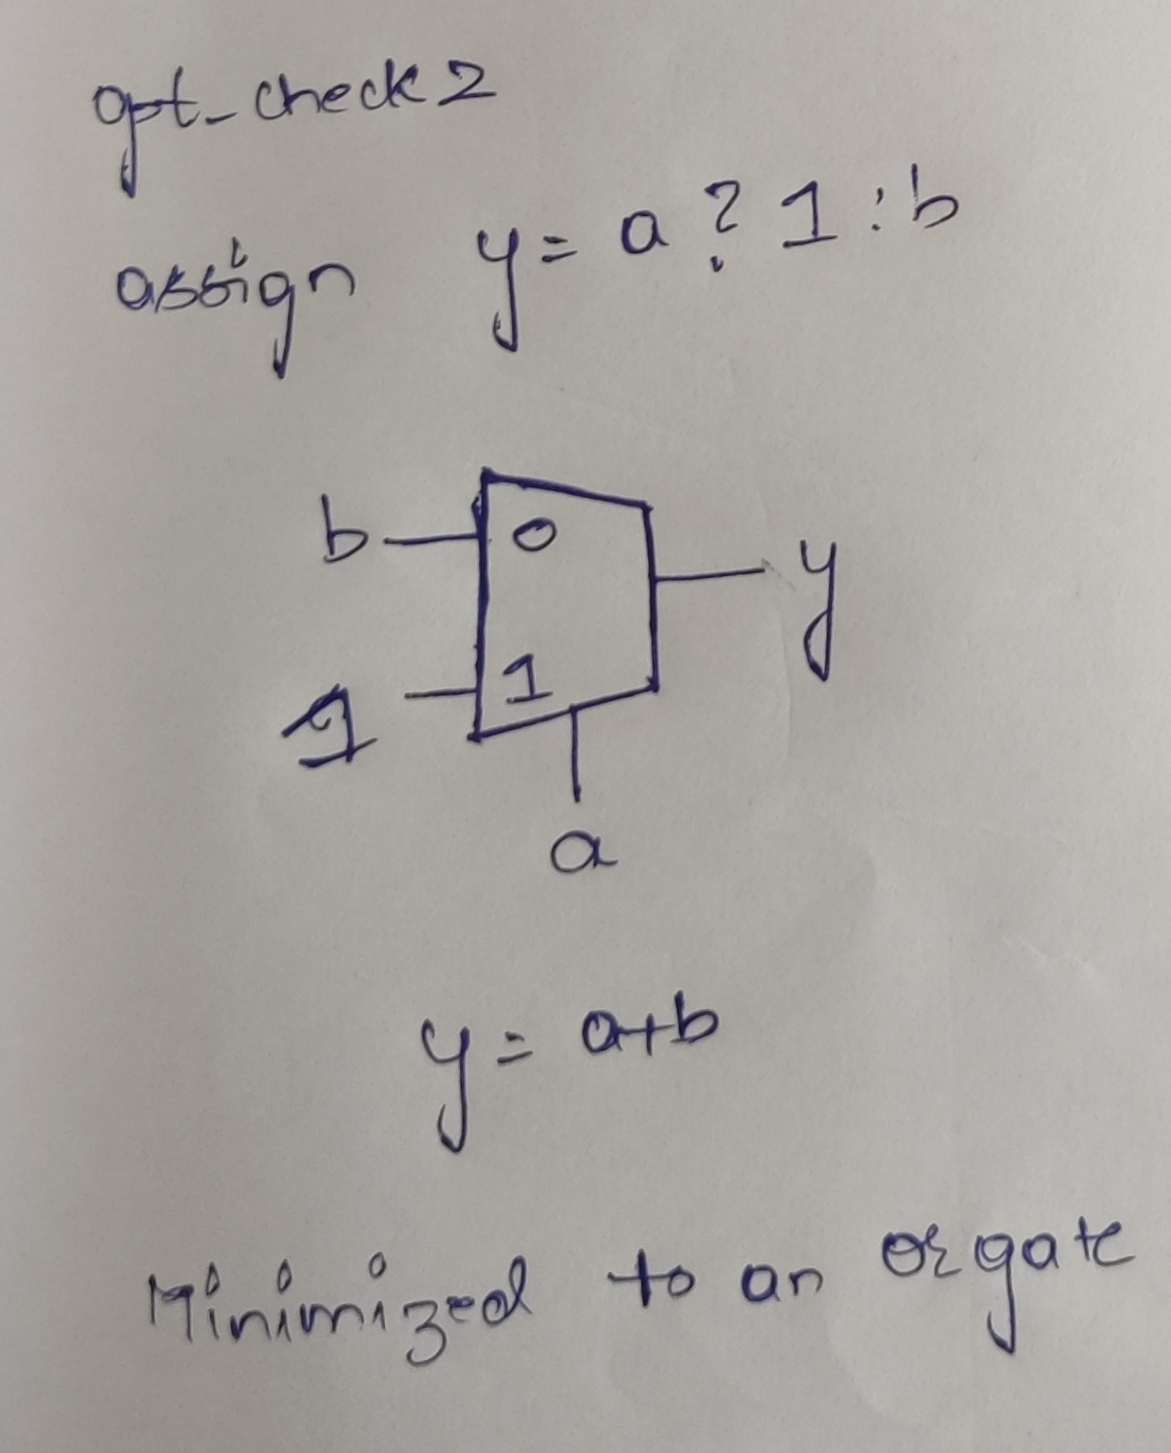 opt_check2
assign y = a ? 1 : b
b 0 y
1 1
a
y = a+b
Minimized to an or gate